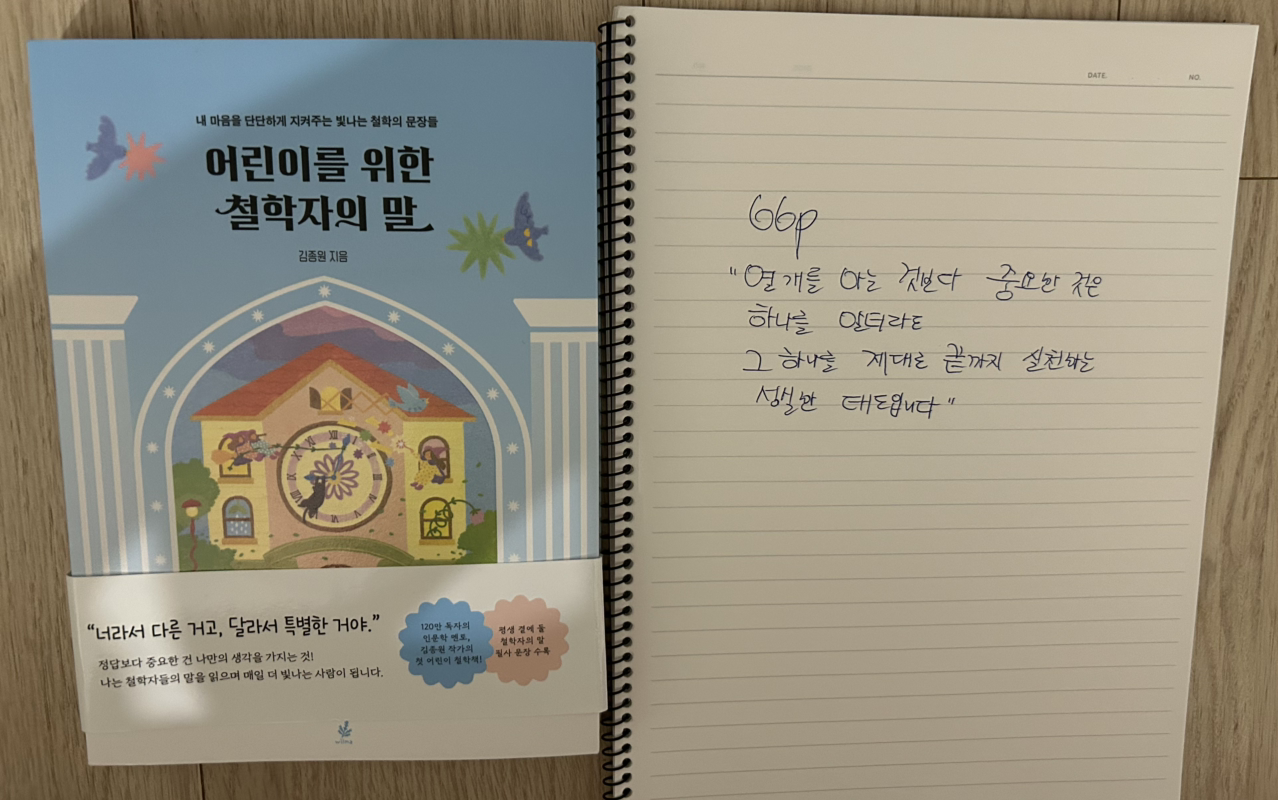 내 마음을 단단하게 지켜주는 빛나는 철학의 문장들
어린이를 위한
철학자의 말
김종원 지음
XII
"너라서 다른 거고, 달라서 특별한 거야."
정답보다 중요한 건 나만의 생각을 가지는 것!
나는 철학자들의 말을 읽으며 매일 더 빛나는 사람이 됩니다.
120만 독자의
인문학 멘토,
김종원 작가의
첫 어린이 철학책!
평생 곁에 둘
철학자의 말
필사 문장 수록
DATE.
NO.
66p
"열 개를 아는 것보다 중요한 것은
하나를 알더라도
그 하나를 제대로 끝까지 실천하는
성실한 태도입니다"